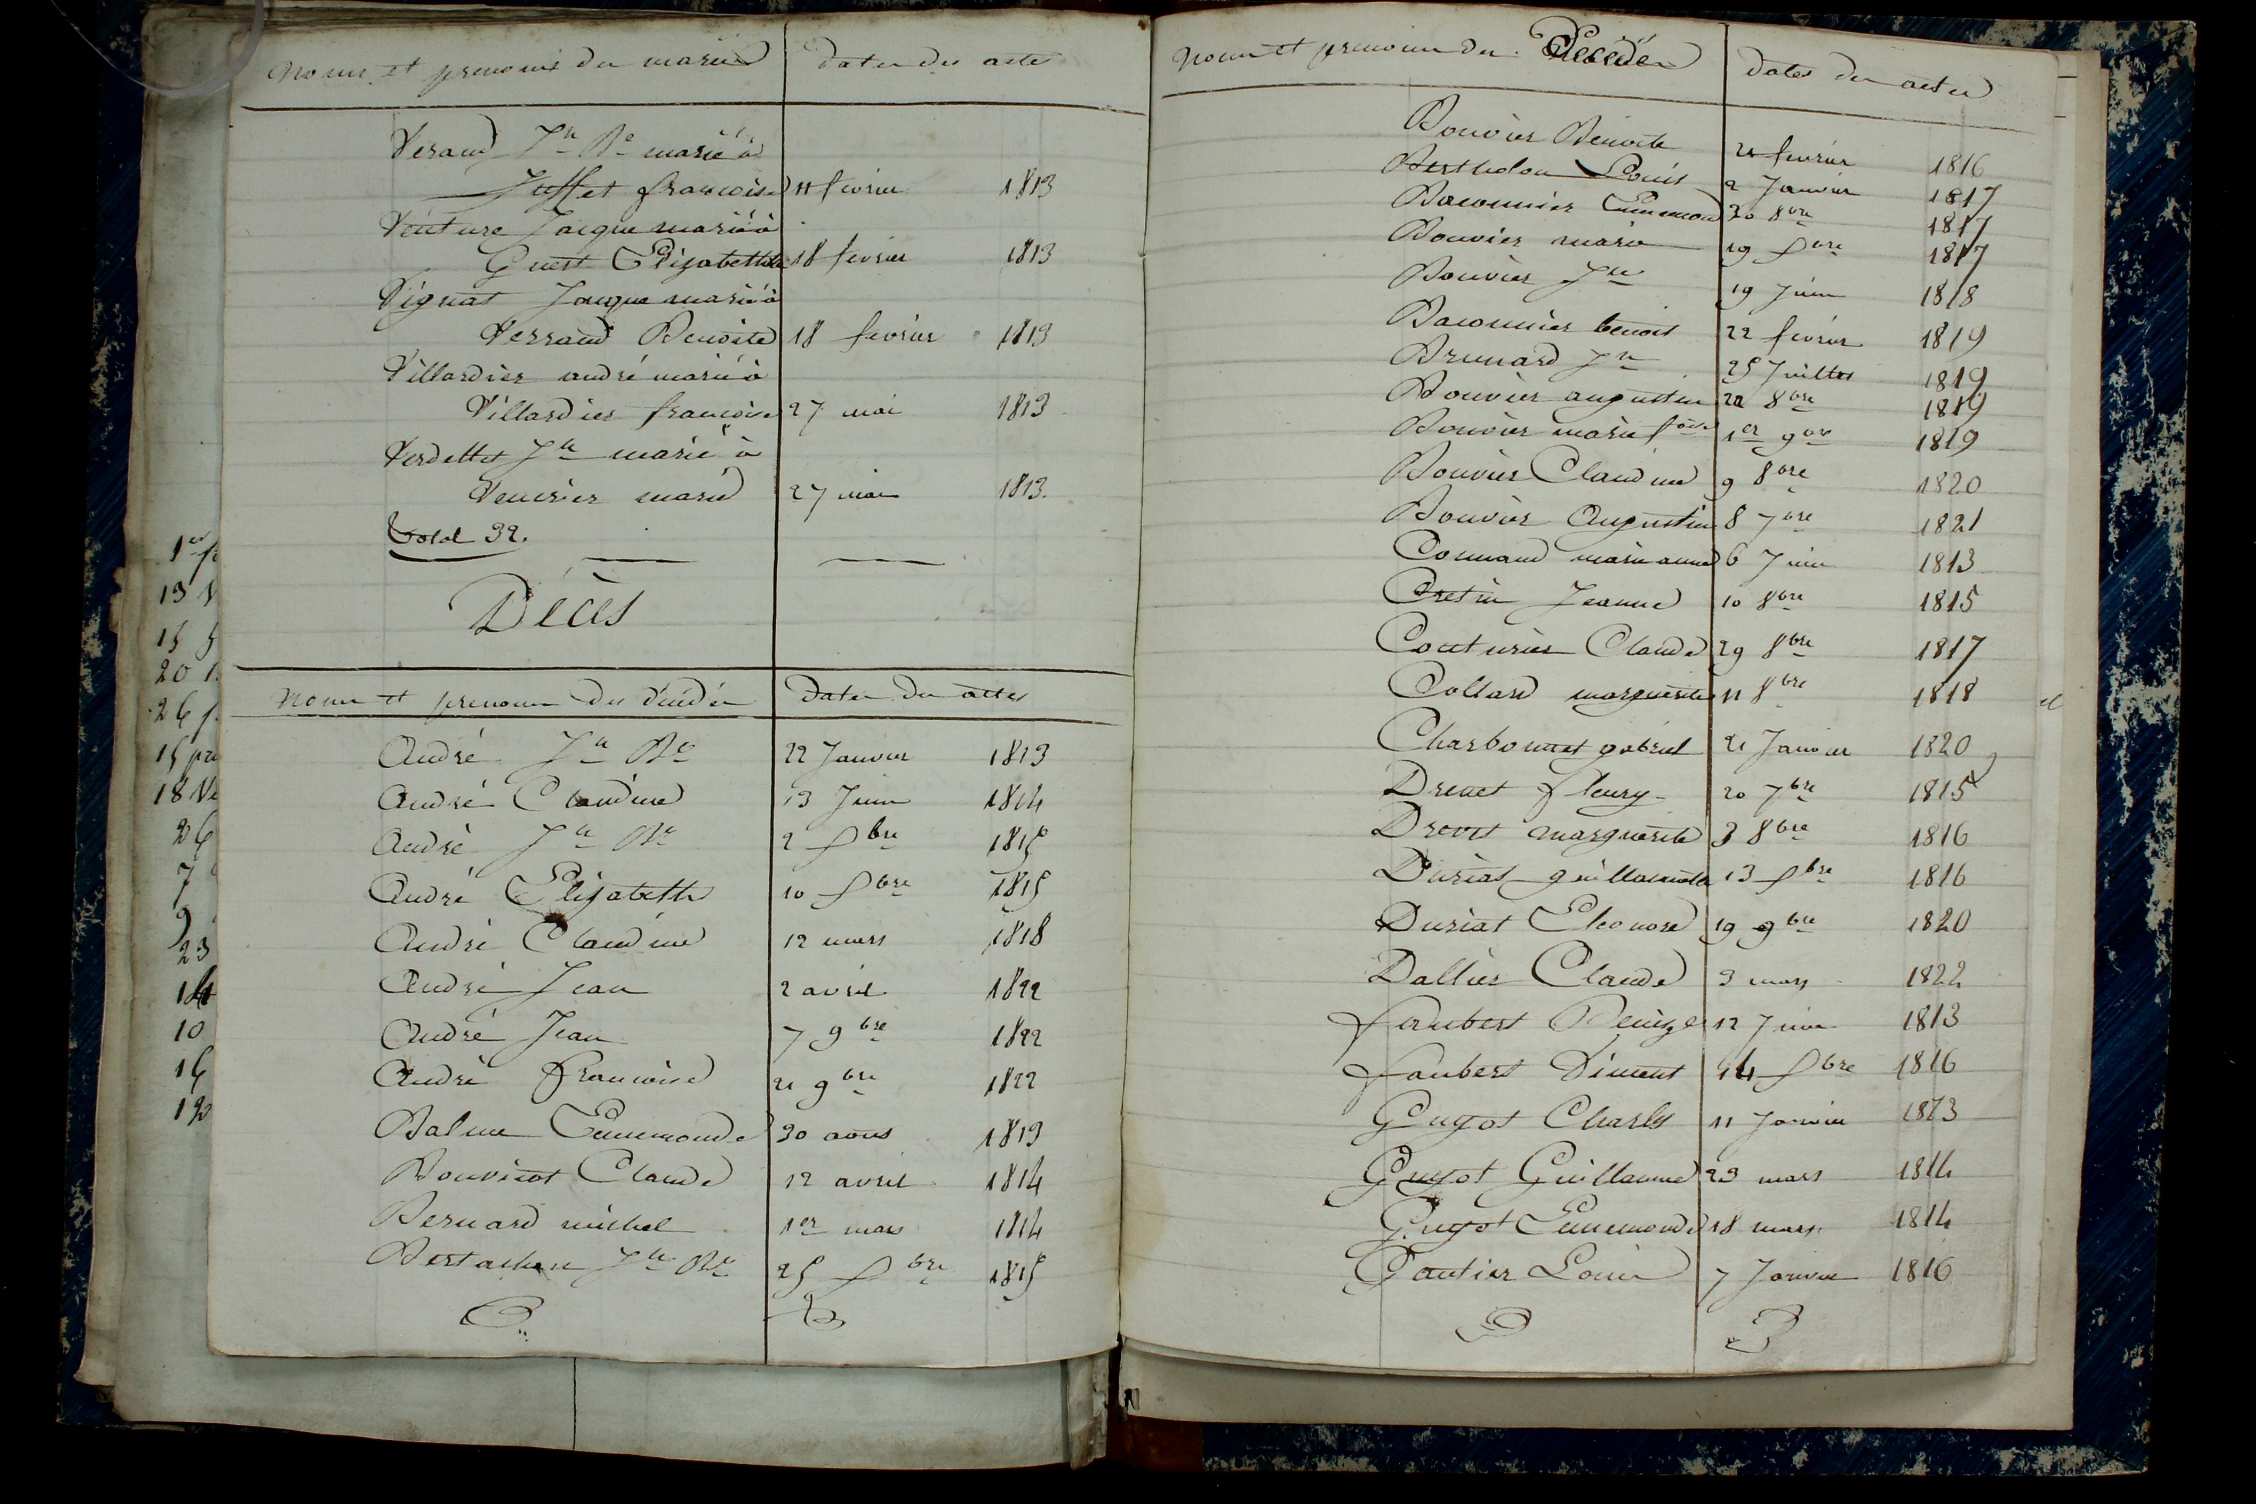 Noms et prenoms des mariés dates des actes
Veraud Jn Bte marié à
Juffet françoise 11 fevrier 1813
Venture Jacque marié à
Guest Elizabetth 18 fevrier 1813
Vignat Jacque marié à
Verraud Benoite 18 fevrier 1813
Villardier andré marié à
Villardier françoise 27 mai 1813
Verdellet Jn marié à
marie 27 mai 1813.
total 32.
Décès
Noms et prenoms des décédés Dates des actes
André Jn Bte 22 Janvier 1813
André Claudine 13 Juin 1814
André Jn Bte 2 Xbre 1815
André Elizabeth 10 Xbre 1815
André Claudine 12 mars 1818
André Jean 2 avril 1822
André Jean 7 9bre 1822
André françoise 21 9bre 1822
Balme Ennemonde 30 aous 1813
Claude 12 avril 1814
Bernard michel 1er mars 1814
Jn Bte 25 Xbre 1815
Noms et prenoms des Décédés dates des actes
Bouvier Benoite 21 fevrier 1816
Bertholon Louis 2 Janvier 1817
Baconnier Ennemond 20 8bre 1817
Bouvier marie 19 Xbre 1817
Bouvier Jn 19 Juin 1818
Baconnier benoit 22 fevrier 1819
Brunard Jn 25 Juillet 1819
Bouvier augustin 22 8bre 1819
Bouvier marie foise 1er 9bre 1819
Bouvier Claudine 9 8bre 1820
Bouvier Augustin 8 7bre 1821
marie anne 6 Juin 1813
Cretin Jeanne 10 8bre 1815
Couturier Claude 29 8bre 1817
Collard marguerite 11 8bre 1818
Charbonnet gabriel 21 Janvier 1820
Drevet fleury 20 7bre 1815
Drevet marguerite 3 8bre 1816
Duriat guillaumette 13 Xbre 1816
Duriat Eleonore 19 9bre 1820
Dallier Claude 3 mars 1822
faubert 12 Juin 1813
faubert Vincent 14 Xbre 1816
Guyot Charles 11 Janvier 1813
Guyot Guillaume 23 mars 1814
Guyot Ennemonde 18 mars 1814
Gautier Louis 7 Janvier 1816